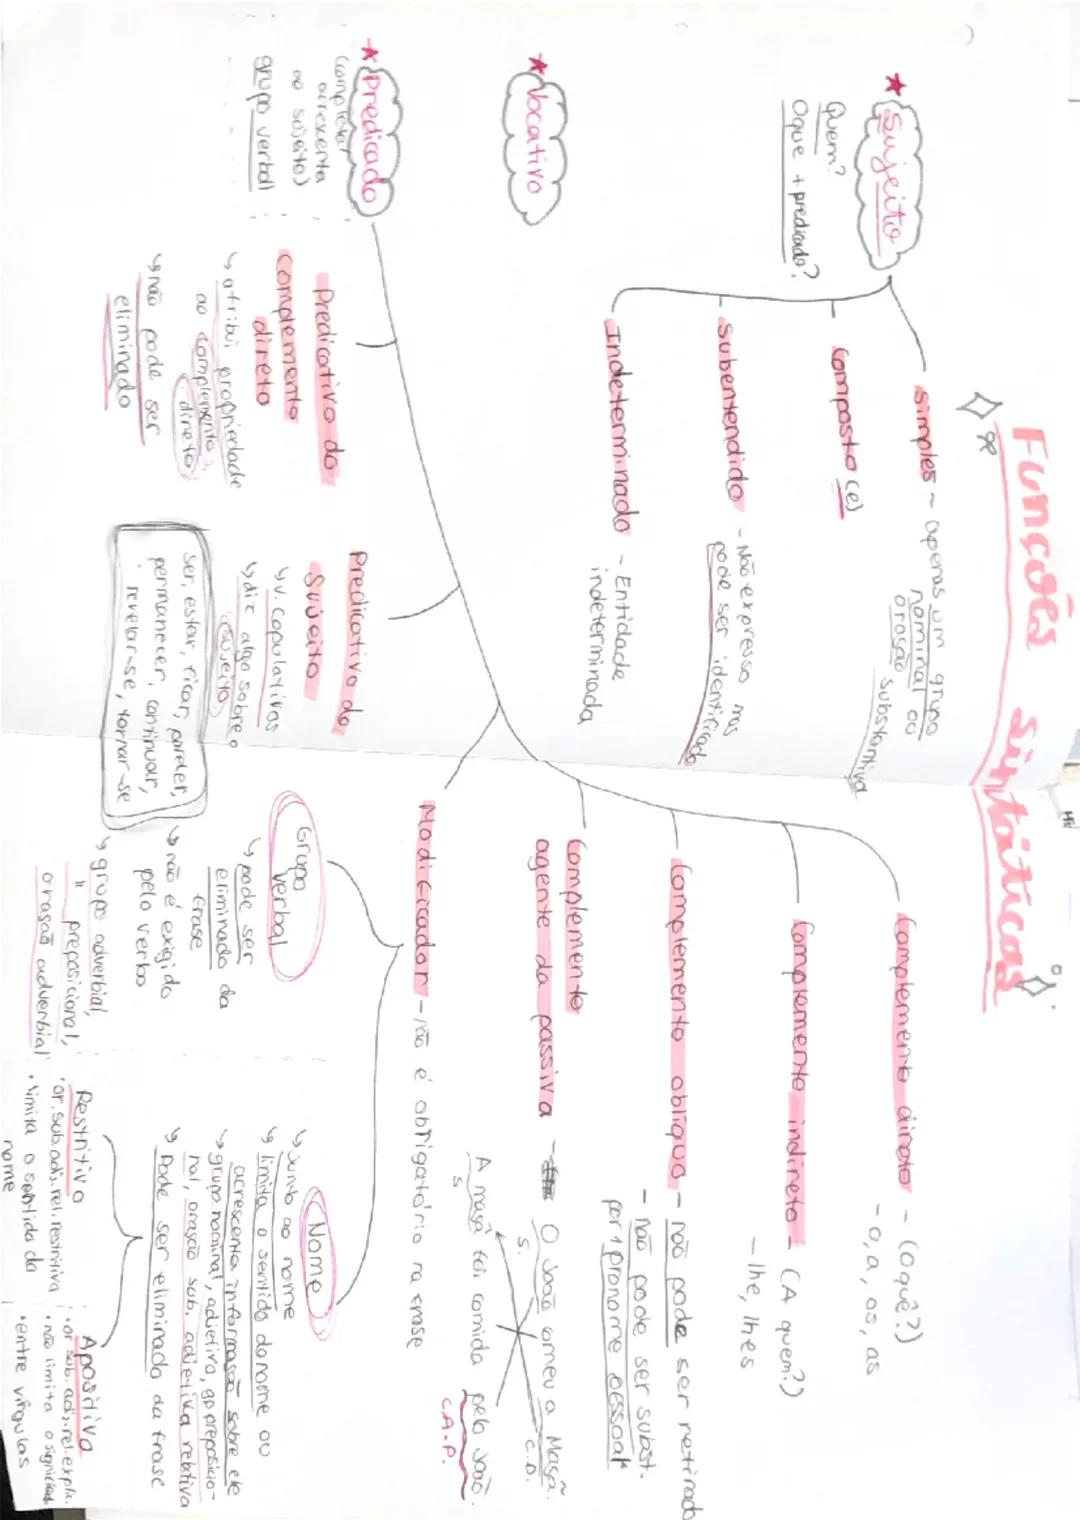 Funções sintáticas
Hi
Sujeito
Quem?
O que + predicado?
simples ~ apenas um grupo
nominal ou
oração substantiva
Composto (e)
subentendido - Não expresso mas
pode ser identificado
Indeterminado - Entidade
indeterminada
Vocativo
Predicado
(completa/
acrescenta
ao sujeito)
grupo verbal
Predicativo do
Complemento
direto
↳ atribui propriedade
ao complemento
direto
↳ não pode ser
eliminado
Predicativo do
Sujeito
↳ v. copulativos
↳ diz algo sobre o
sujeito
ser, estar, ficar, parecer,
permanecer, continuar,
revelar-se, tornar-se
Complemento direto - (o quê?)
- o, a, os, as
Complemento indireto - (A quem?)
- lhe, lhes
Complemento obliquo - não pode ser retirado
- não pode ser subst.
por 1 pronome pessoal
Complemento
agente da passiva - O João comeu a Maçã.
S. C.D.
A maçã foi comida pelo João.
S C.A.P.
Modificador - não é obrigatório na frase
Grupo
verbal
↳ pode ser
eliminado da
frase
↳ não é exigido
pelo verbo
↳ grupo adverbial,
" preposicional,
oração adverbial
Nome
↳ Junto ao nome
↳ limita o sentido do nome ou
acrescenta informação sobre ele
↳ grupo nominal, adjetivo, gp preposicio-
nal, oração sub. adjetiva relativa
↳ Pode ser eliminado da frase
Restritivo
• or. sub. adj. rel. restritiva
• limita o sentido do
nome
Apositivo
• or sub. adj. rel. explic.
• não limita o significado
• entre vírgulas